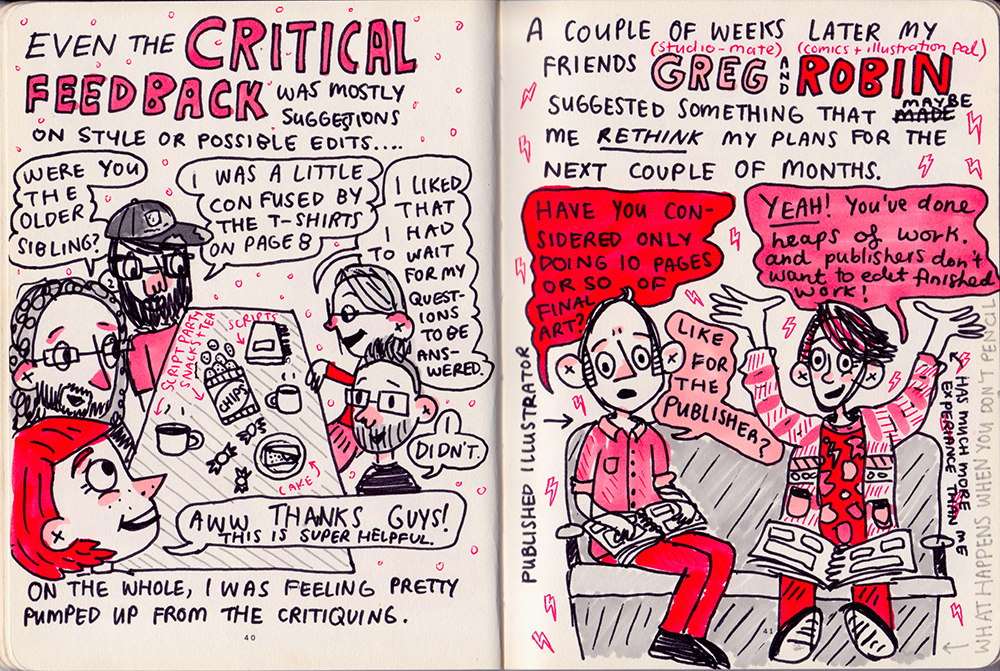 EVEN THE CRITICAL
FEEDBACK WAS MOSTLY
SUGGESTIONS
ON STYLE OR POSSIBLE EDITS....
WERE YOU
THE
OLDER
SIBLING?
I WAS A LITTLE
CONFUSED BY
THE T-SHIRTS
ON PAGE 8
I LIKED
THAT
I HAD
TO WAIT
FOR MY
QUEST-
IONS
TO BE
ANS-
WERED.
I
DIDN'T.
SCRIPT PARTY
SNACKS + TEA
SCRIPTS
CHIPS
CAKE
AWW THANKS GUYS!
THIS IS SUPER HELPFUL.
ON THE WHOLE, I WAS FEELING PRETTY
PUMPED UP FROM THE CRITIQUING.
40
A COUPLE OF WEEKS LATER MY
(studio-mate) (comics + illustration pal)
FRIENDS GREG AND ROBIN
SUGGESTED SOMETHING THAT MADE MAYBE
ME RETHINK MY PLANS FOR THE
NEXT COUPLE OF MONTHS.
HAVE YOU CON-
SIDERED ONLY
DOING 10 PAGES
OR SO OF
FINAL
ART?
YEAH! You've done
heaps of work.
and publishers don't
want to edit finished
work!
LIKE
FOR
THE
PUBLISHER?
PUBLISHED ILLUSTRATOR
HAS MUCH MORE
EXPERIANCE THAN ME
WHAT HAPPENS WHEN YOU DON'T PENCIL
41